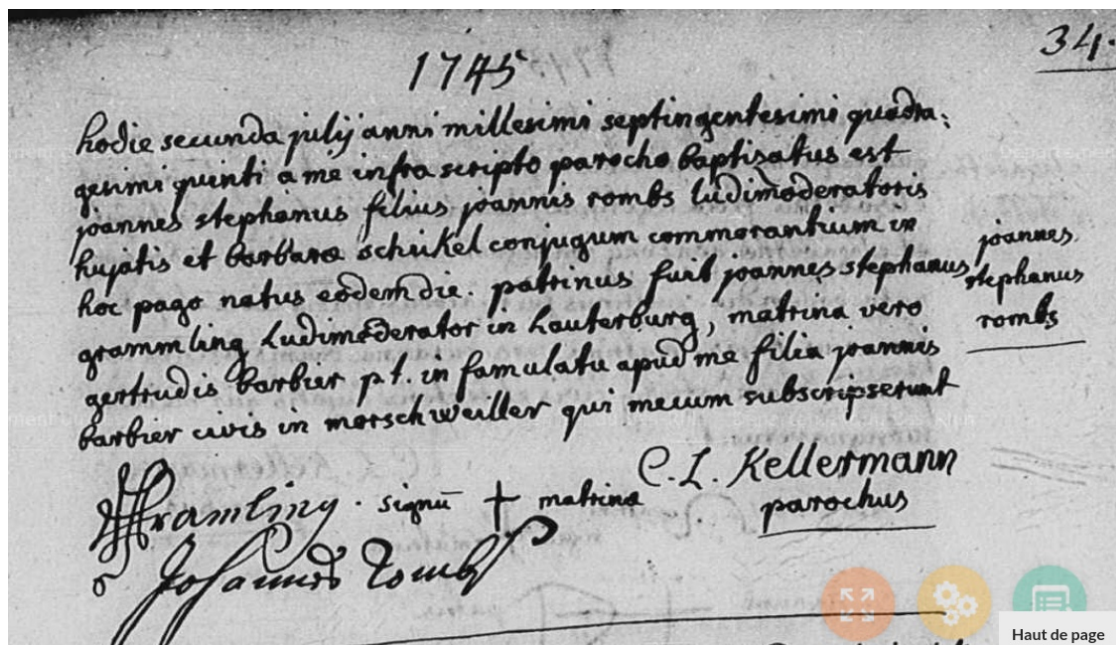 1745
34.
hodie secunda julij anni millesimi septingentesimi quadra:
gesimi quinti a me infra scripto parocho baptisatus est
joannes stephanus filius joannis rombs ludimoderatoris
hujatis et barbara schikel conjugum commorantium in
hoc pago natus eodem die. patrinus fuit joannes stephanus
grammling Ludimoderator in Lauterburg, matrina vero
gertrudis barbier p.t. in famulatu apud me filia joannis
barbier civis in morschweiller qui mecum subscripserunt
joannes
stephanus
rombs
C. L. Kellermann
parochus
Gramling. signū + matrina
Johannes Rombs
Haut de page